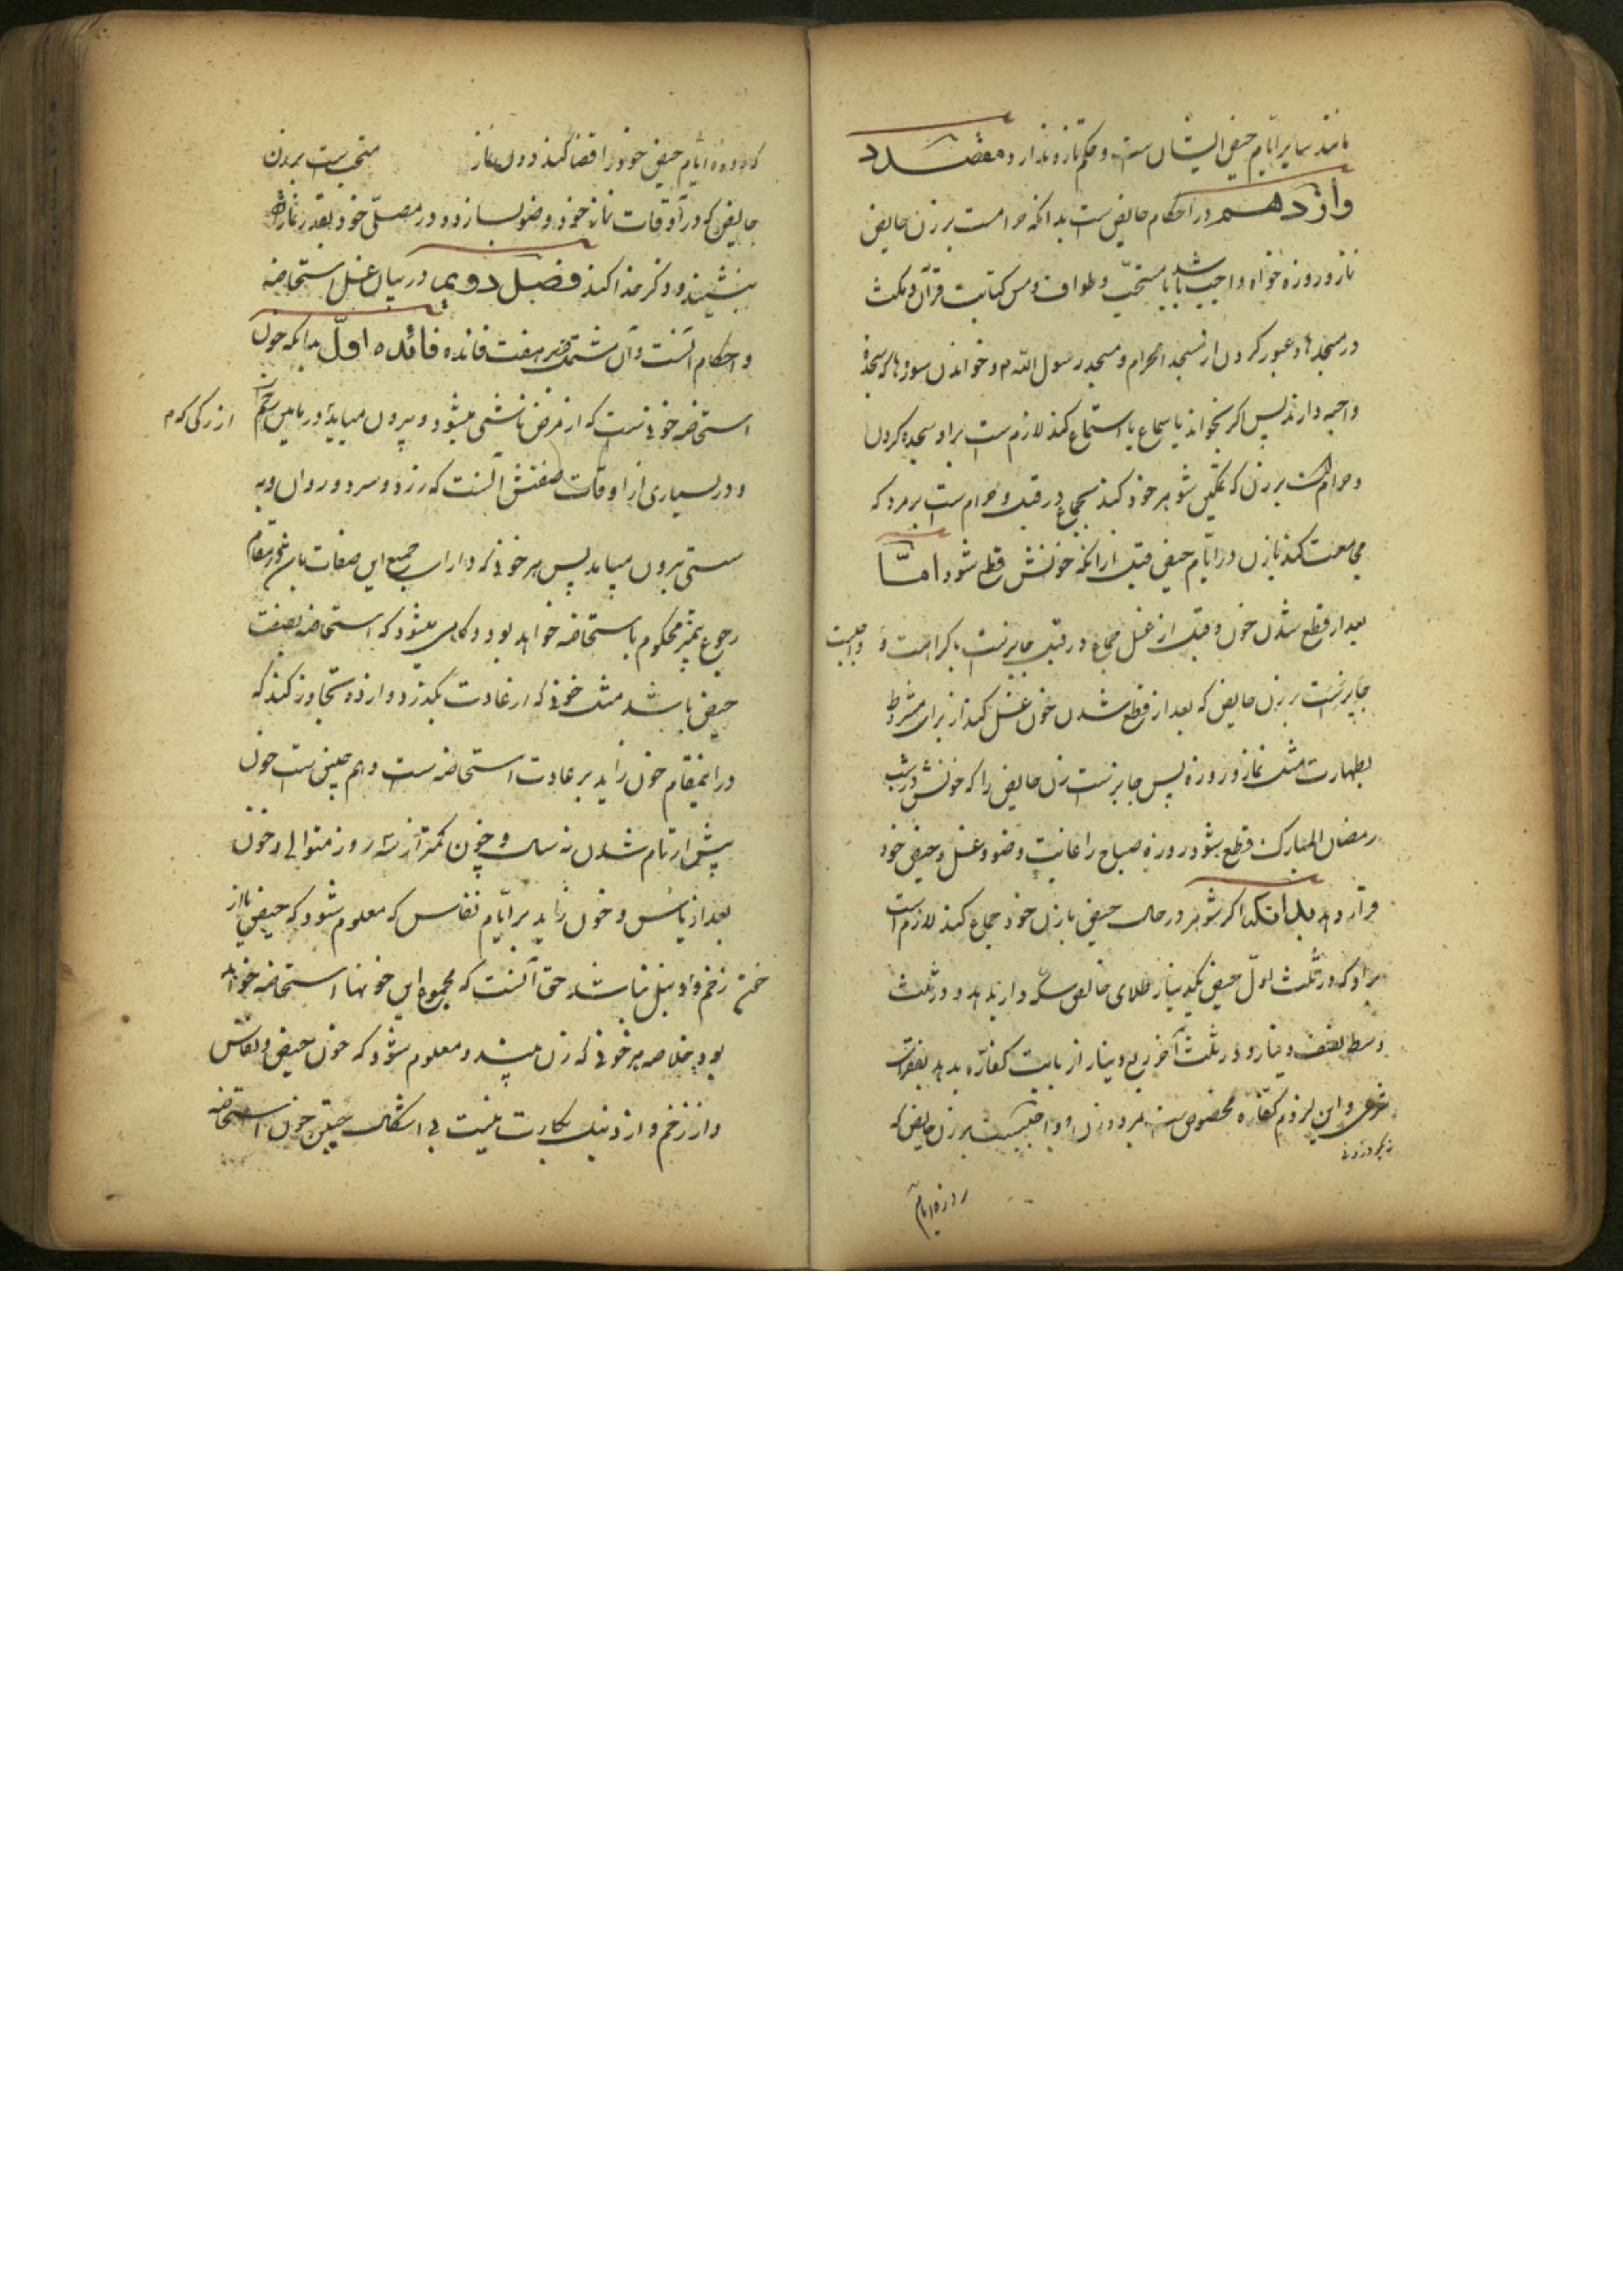 مانند سایر ایام حیض ایشان ست و حکم تازه ندارد مقصد د
وازدهم در احکام حایض ست بدانکه حرامست بر زن حایض
نماز و روزه خواه واجب باشد یا مستحب و طواف و مس کتابت قرآن و مکث
در مسجدها و عبور کردن از مسجد الحرام و مسجد رسول الله م و خواندن سورهاکه سجدهٔ
واجبه دارند پس اگر بخواند یا سماع یا استماع کند لازم ست بر او سجده کردن
و حرام است بر زن که تمکین شوهر خود کند بجماع در قبل و حرام ست بر مرد که
مجامعت کند با زن در ایام حیض قبل از آنکه خونش قطع شود اما
بعد از قطع شدن خون و قبل از غسل جماع در قبل جایز ست با کراهت و واجبست
جایز نست بر زن حایض که بعد از قطع شدن خون غسل کند از برای مشروط
بطهارت مثل نماز و روزه پس جایز نست زن حایض را که خونش در شب
رمضان المبارک قطع بشود روزه صباح را غایت وضو و غسل حیض خود
قرار دهد بدانکه اگر شوهر در حال حیض با زن خود جماع کند لازم است
بر او که در ثلث اول حیض یکدینار طلای خالص سکه دار بدهد و در ثلث
وسط نصف دینار و در ثلث آخر ربع دینار از بابت کفاره بدهد بفقرات
شرعی و این لزوم کفاره مخصوص ست بمرد و زن و واجبست بر زن حایض که
روزه ایام
که روزه ایام حیض خود را قضا کند دون نماز مستحب ست بر زن
حایض که در اوقات نماز خود وضو بسازد و در مصلی خود بقدر نمازش
بنشیند و ذکر خدا کند فصل دویم در بیان غسل استحاضه
و احکام آنست و آن مشتمل بر هفت فائده فائده اول بدانکه خون
استحاضه خونی ست که از مرض ناشی میشود و بیرون میاید از رگی که م
و در بسیاری از اوقات صفتش آنست که زرد و سرد و روان و به
سستی بیرون میاید پس هر خونی که دارای جمیع این صفات باشد در مقام
رجوع بتمیز محکوم باستحاضه خواهد بود و گاهی میشود که استحاضه بصفت
حیض باشد مثل خونی که از عادت بگذرد و از ده تجاوز کند که
در اینمقام خون زاید بر عادت استحاضه ست و هم چنین ست خون
پیش از تمام شدن نه سال و خون کمتر از سه روز متوالی و خون
بعد از یائس و خون زاید بر ایام نفاس که معلوم شود که حیض یا از
زخم و دنبل نباشد حق آنست که مجموع این خونها استحاضه خواهد
بود خلاصه هر خونی که زن ببیند و معلوم شود که خون حیض و نفاس
و از زخم و از دنبل بکارت نیست بی اشکال چنین خون استحاضه